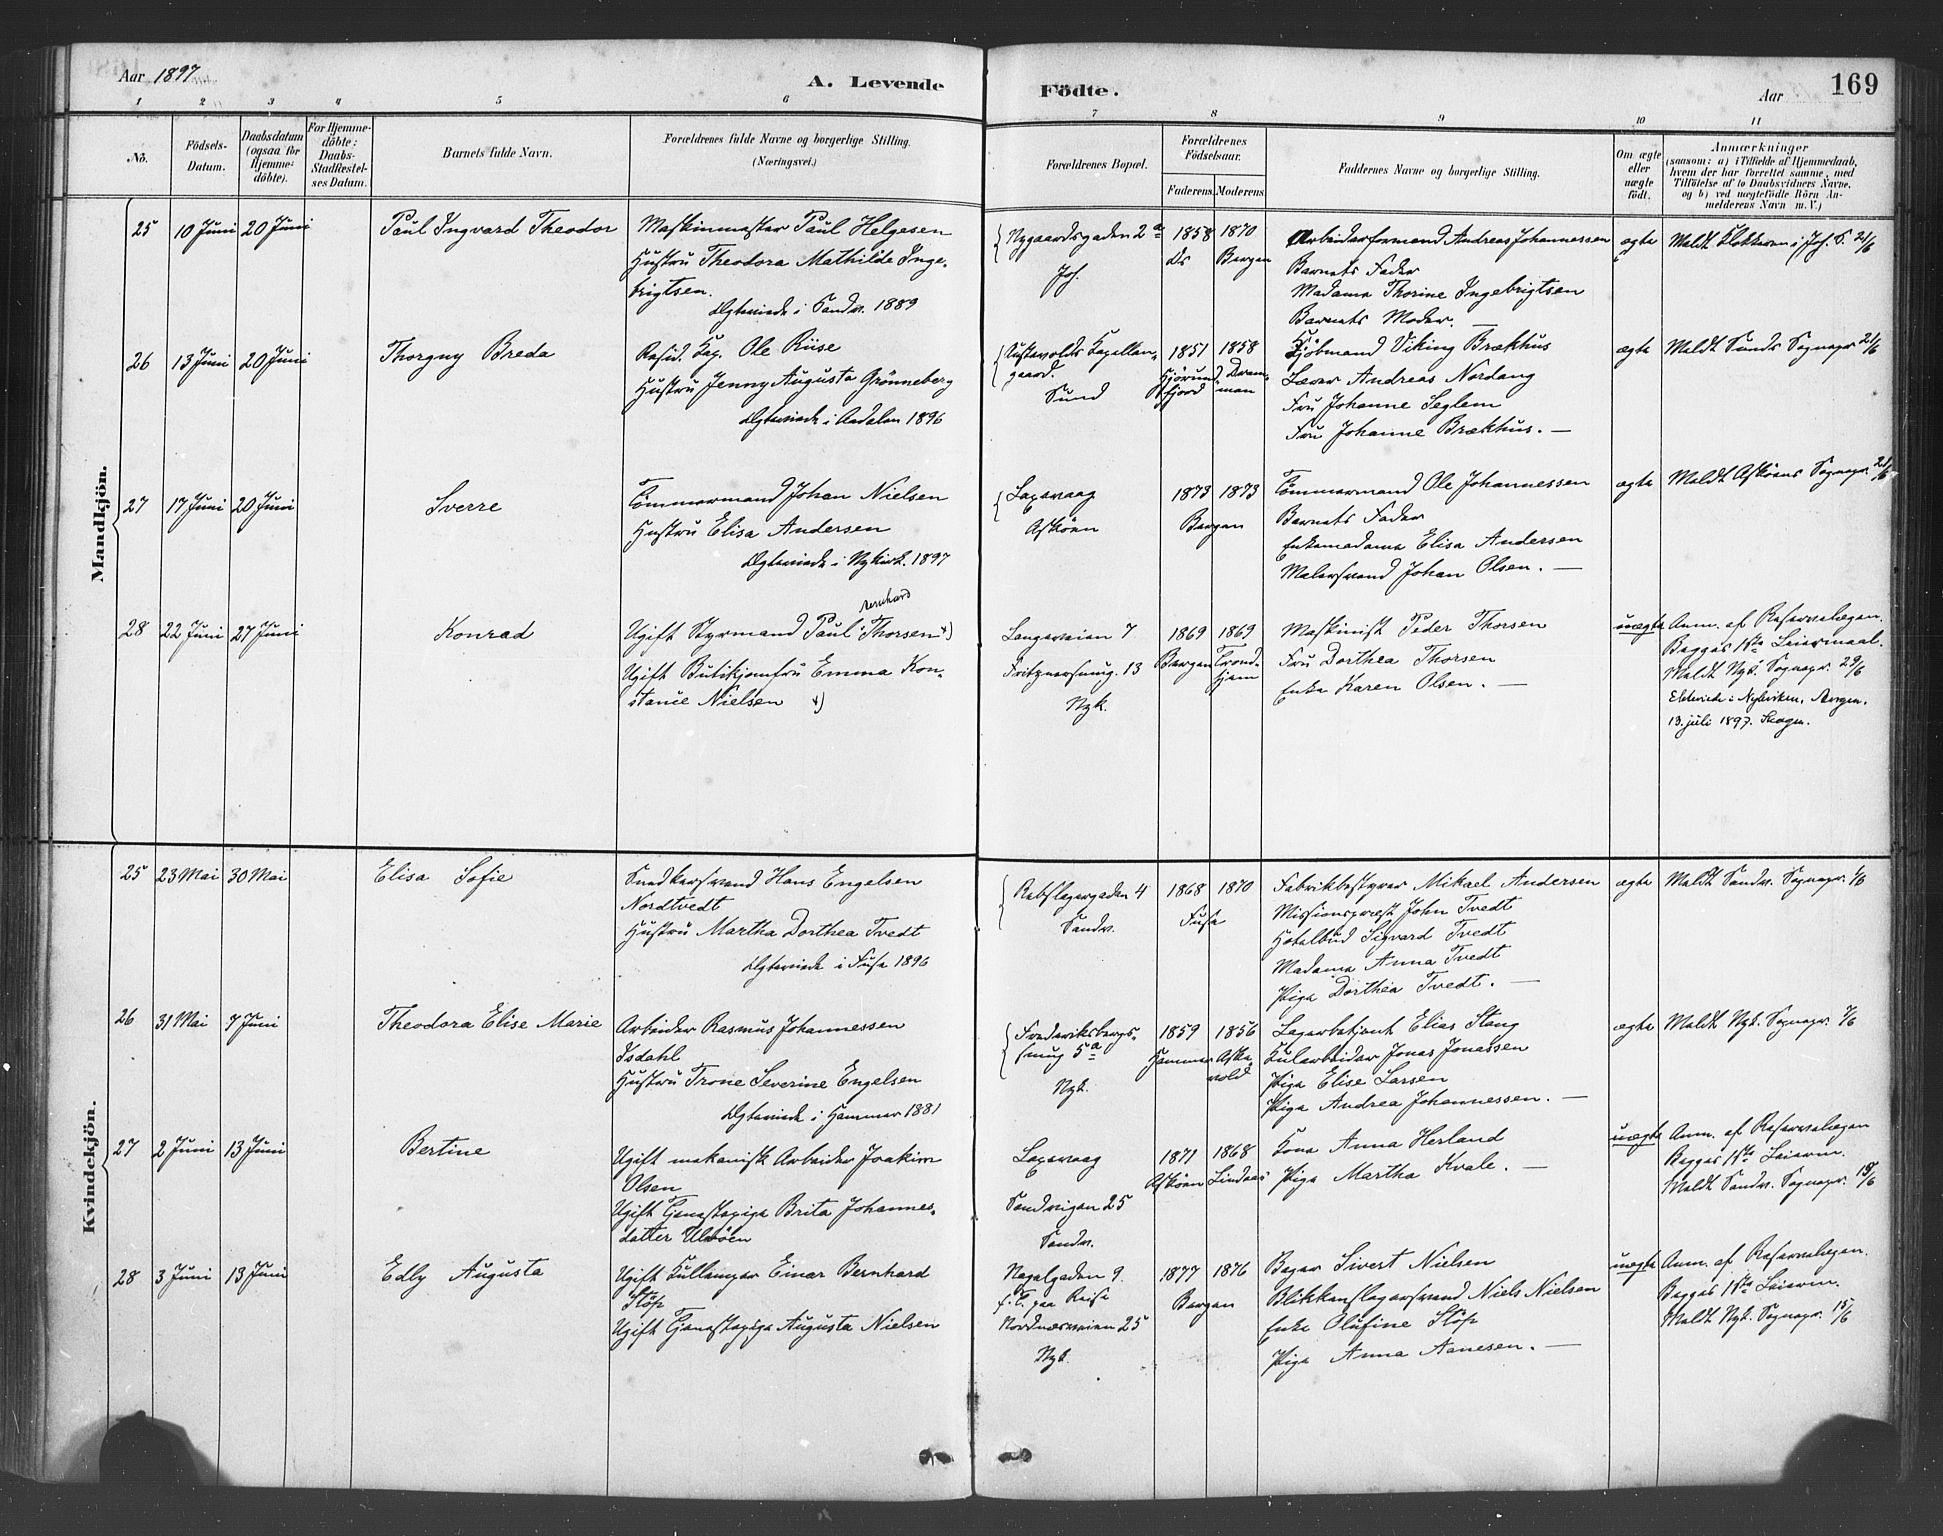 Aar 1897
A. Levende
Födte.
Aar
169
1 2 3 4 5 6 7 8 9 10 11
No.
Födsels-
Datum.
Daabsdatum
(ogsaa for
Hjemme-
döbte).
For Hjemme-
döbte:
Daabs-
Stadfæstel-
ses Datum.
Barnets fulde Navn.
Forældrenes fulde Navne og borgerlige Stilling.
(Næringsvei.)
Forældrenes Bopæl.
Forældrenes
Födselsaar.
Faderens. Moderens.
Faddernes Navne og borgerlige Stilling.
Om ægte
eller
uægte
födt.
Anmærkninger
(saasom: a) i Tilfælde af Hjemmedaab,
hvem der har forrettet samme, med
Tilföielse af to Daabsvidners Navne,
og b) ved uægtefödte Börn An-
melderens Navn m. V.)
Mandkjön.
25 10 Juni 20 Juni Paul Ingvard Theodor
Maskinmester Paul Helgesen
Hustru Theodora Mathilde Inge-
brigtsen.
Ægteviede i Sandv. 1889
Nygaardsgaden 2 a
Joh.
1858 1870
Ds Bergen
Arbeiderformand Andreas Johannessen
Barnets Fader
Madame Thorine Ingebrigtsen
Barnets Moder. —
ægte
Meldt Klokkeren i Joh. S. 21/6
26 13 Juni 20 Juni Thorguy Breda
Resid. Kap. Ole Riise
Hustru Jenny Augusta Grönneberg
Ægteviede i Aadalen 1896
Kapellan-
gaard.
Sund
1851 1858
Hjörund- Dram-
fjord men
Kjöbmand Viking Brækhus
Lærer Andreas Nordang
Fru Johanne Seglem
Fru Johanne Brækhus. —
ægte
Meldt Sunds Sognepr 21/6
27 17 Juni 20 Juni Sverre
Tömmermand Johan Nielsen
Hustru Elisa Andersen
Ægteviede i Nykirk. 1897
Laxevaag
Asköen
1873 1873
Bergen
Tömmermand Ole Johannessen
Barnets Fader
Enkemadame Elisa Andersen
Malersvend Johan Olsen. —
ægte
Meldt Asköens Sognepr. 21/6
28 22 Juni 27 Juni Konrad
Bernhard
Ugift Styrmand Paul Thorsen
Ugift Butikjomfru Emma Kon-
stance Nielsen
Langeveien 7
Fritznersmug. 13
Nyk.
1869 1869
Bergen Trond-
hjem
Maskinist Peder Thorsen
Fru Dorthea Thorsen
Enke Karen Olsen. —
uægte
Anm. af Reservelægen.
Begges 1ste Leiermaal.
Meldt Nyk. Sognepr. 29/6
Ekteviede i Nykirken, Bergen,
13. juli 1897.
Kvindekjön.
25 23 Mai 30 Mai Elisa Sofie
Snedkersvend Hans Engelsen
Nordtvedt
Hustru Martha Dorthea Tvedt
Ægteviede i Fuse 1896
Rebslagergaden 4
Sandv.
1868 1870
Fuse
Fabrikbestyrer Mikael Andersen
Missionsprest John Tvedt
Hotelbud Sigvard Tvedt
Madame Anna Tvedt
Pige Dorthea Tvedt. —
ægte
Meldt Sandv. Sognepr. 1/6
26 31 Mai 7 Juni Theodora Elise Marie
Arbeider Rasmus Johannessen
Isdahl
Hustru Trone Severine Engelsen
Ægteviede i Hammer 1881
Frederiksbergs-
smug 5 a
Nyk.
1859 1856
Hammer Aske-
vold
Lagerbetjent Elias Stang
Kularbeider Jonas Jonassen
Pige Elise Larsen
Pige Andrea Johannessen. —
ægte
Meldt Nyk. Sognepr. 7/6
27 2 Juni 13 Juni Bertine
Ugift mekanisk Arbeider Joakim
Olsen
Ugift Tjenestepige Brita Johannes-
datter Ulvöen
Laxevaag
Sandvigen 25
Sandv.
1871 1868
Asköen Lindaas
Kone Anna Herland
Pige Martha Kvale. —
uægte
Anm. af Reservelægen
Begges 1ste Leierm.
Meldt Sandv. Sognepr. 15/6
28 3 Juni 13 Juni Edly Augusta
Ugift Kullemper Einar Bernhard
Stöp
Ugift Tjenestepige Augusta Nielsen
Nagelgaden 9.
f. T. paa Reise
Nordnesveien 25
Nyk.
1877 1876
Bergen
Bager Sivert Nielsen
Blikkenslagersvend Niels Nielsen
Enke Olufine Stöp
Pige Anna Aanesen. —
uægte
Anm. af Reservelægen.
Begges 1ste Leierm.
Meldt Nyk. Sognepr. 15/6